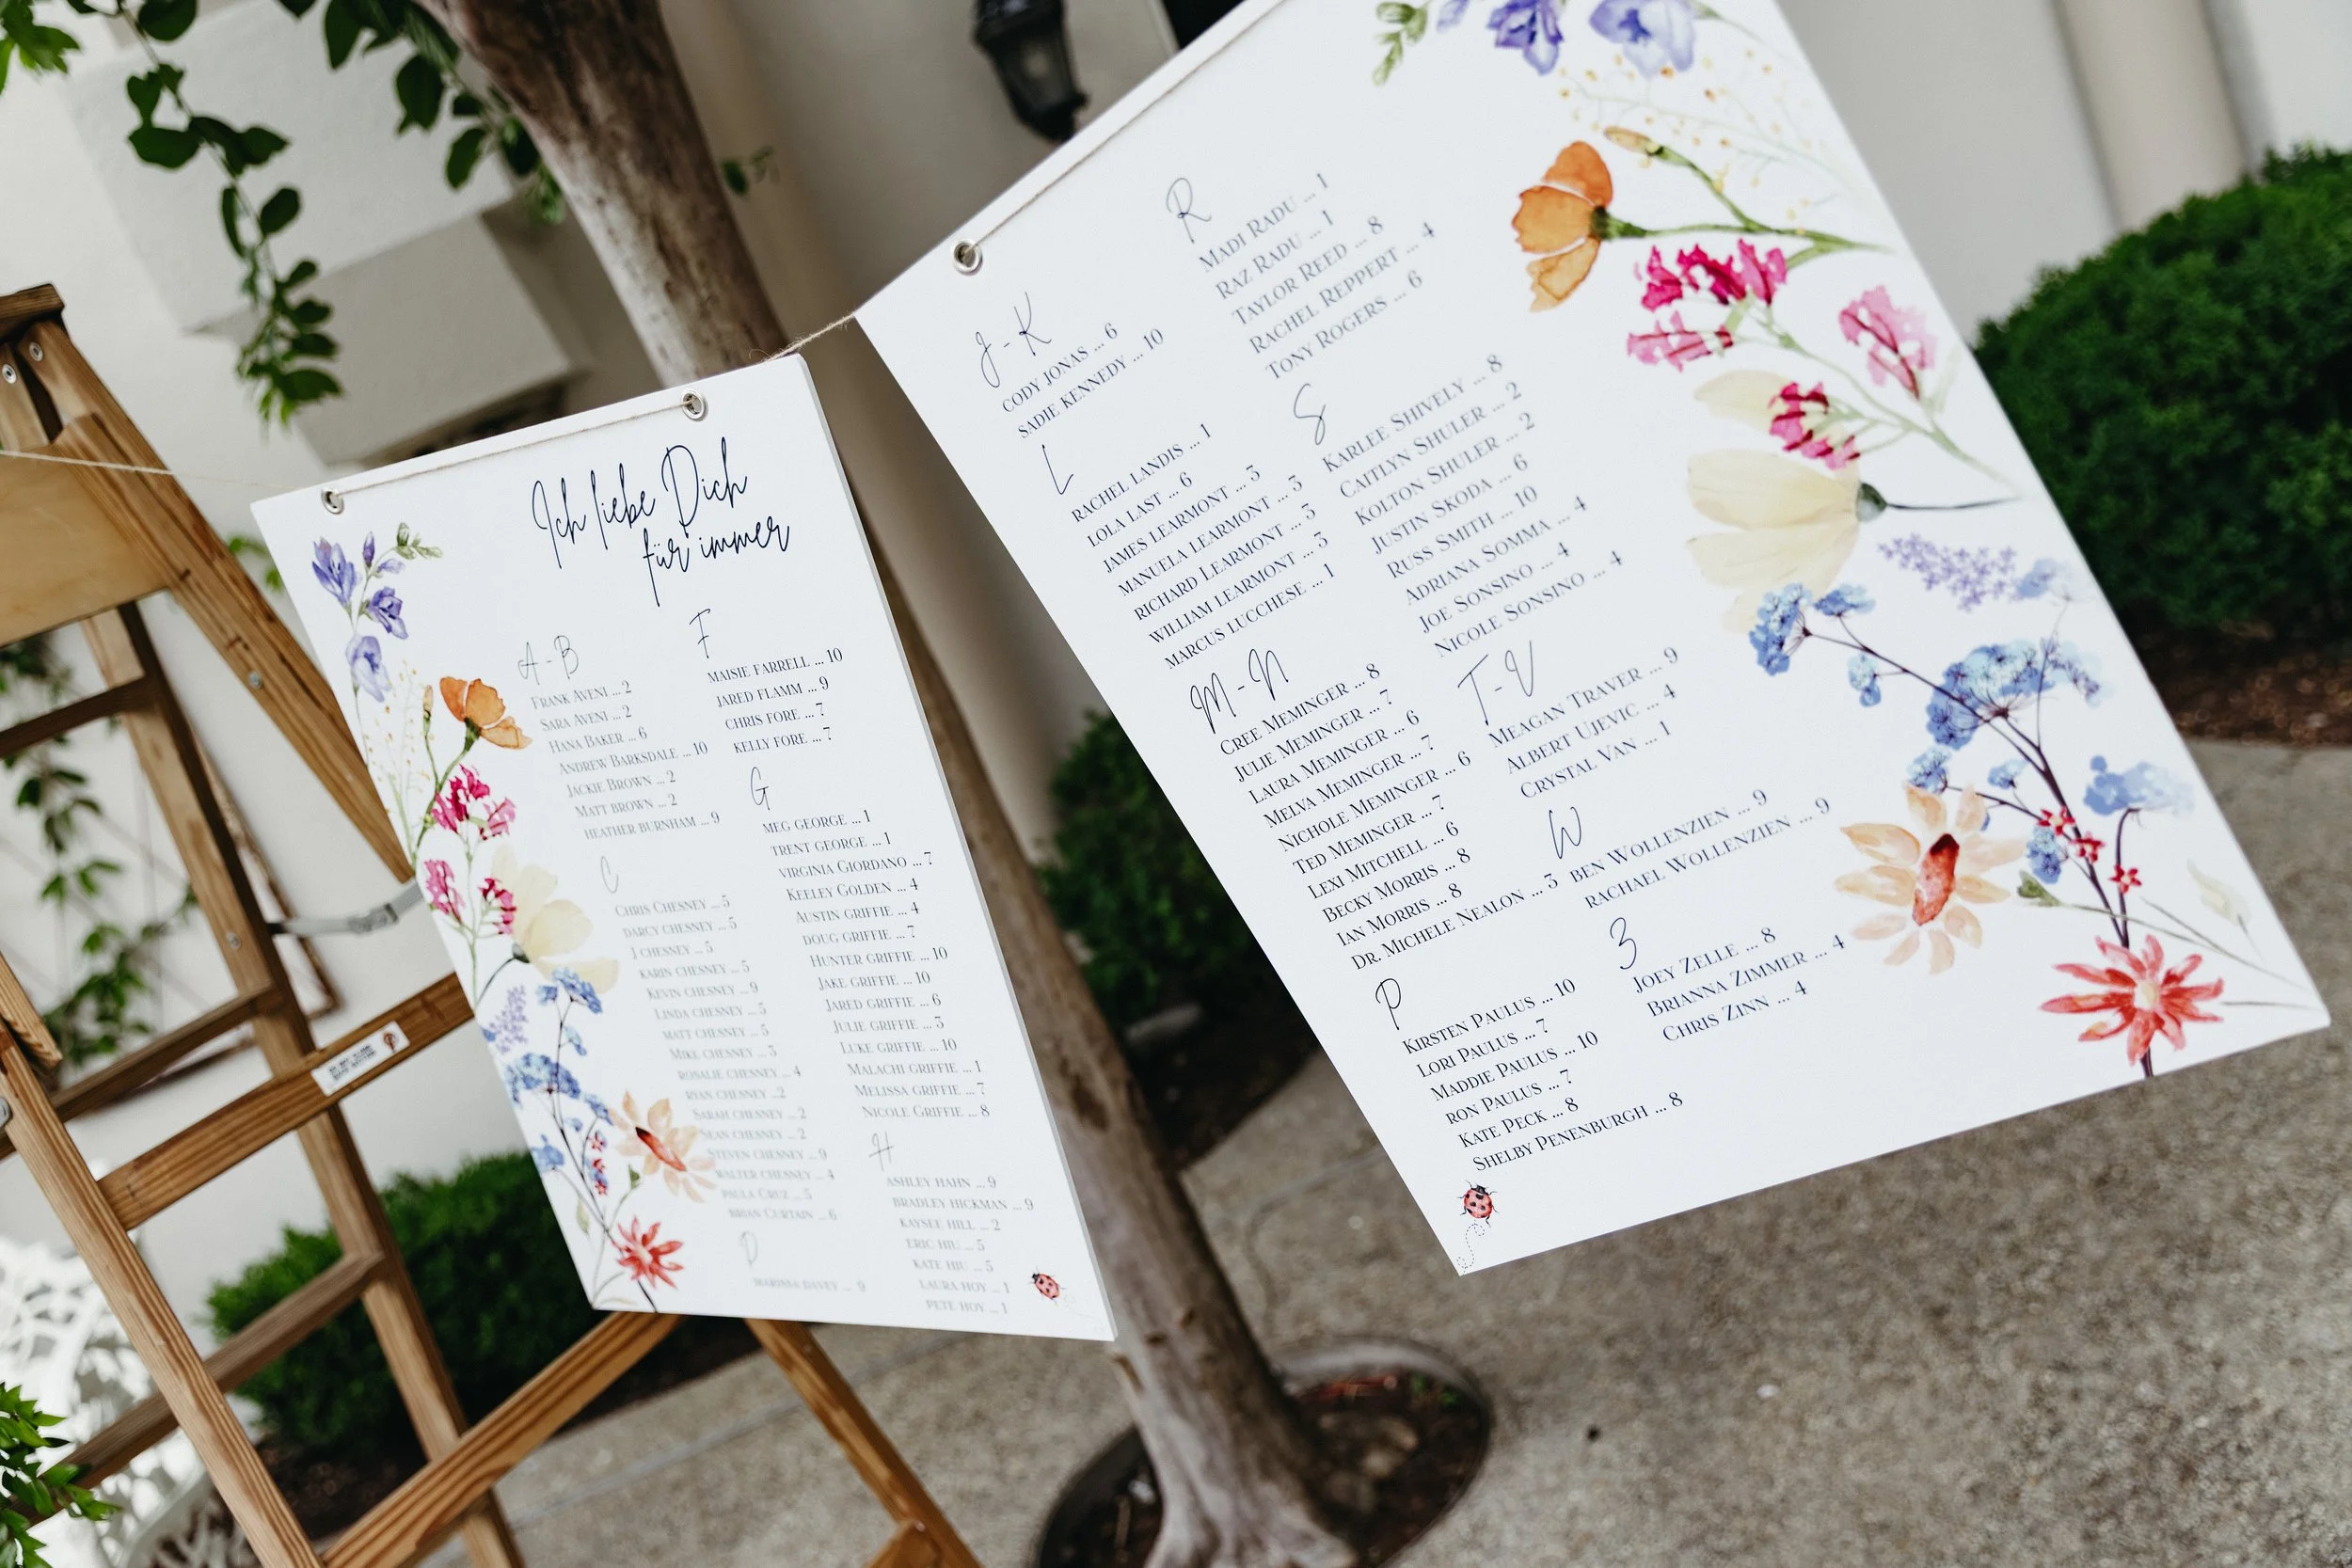 Ich liebe Dich
für immer
A-B
Frank Aveni ... 2
Sara Aveni ... 2
Hana Baker ... 6
Andrew Barksdale ... 10
Jackie Brown ... 2
Matt Brown ... 2
Heather Burnham ... 9
C
Chris Chesney ... 5
Darcy Chesney ... 5
J Chesney ... 5
Karin Chesney ... 5
Kevin Chesney ... 9
Linda Chesney ... 5
Matt Chesney ... 5
Mike Chesney ... 3
Rosalie Chesney ... 4
Ryan Chesney ... 2
Sarah Chesney ... 2
Sean Chesney ... 2
Steven Chesney ... 9
Walter Chesney ... 4
Paula Cruz ... 5
Brian Curtain ... 6
D
Marissa Davey ... 9
F
Maisie Farrell ... 10
Jared Flamm ... 9
Chris Fore ... 7
Kelly Fore ... 7
G
Meg George ... 1
Trent George ... 1
Virginia Giordano ... 7
Keeley Golden ... 4
Austin Griffie ... 4
Doug Griffie ... 7
Hunter Griffie ... 10
Jake Griffie ... 10
Jared Griffie ... 6
Julie Griffie ... 3
Luke Griffie ... 10
Malachi Griffie ... 1
Melissa Griffie ... 7
Nicole Griffie ... 8
H
Ashley Hahn ... 9
Bradley Hickman ... 9
Kaysee Hill ... 2
Eric Hiu ... 5
Kate Hiu ... 5
Laura Hoy ... 1
Pete Hoy ... 1
J-K
Cody Jonas ... 6
Sadie Kennedy ... 10
L
Rachel Landis ... 1
Lola Last ... 6
James Learmont ... 3
Manuela Learmont ... 3
Richard Learmont ... 3
William Learmont ... 3
Marcus Lucchese ... 1
M-N
Cree Meminger ... 8
Julie Meminger ... 7
Laura Meminger ... 6
Melva Meminger ... 7
Nichole Meminger ... 6
Ted Meminger ... 7
Lexi Mitchell ... 6
Becky Morris ... 8
Ian Morris ... 8
Dr. Michele Nealon ... 3
P
Kirsten Paulus ... 10
Lori Paulus ... 7
Maddie Paulus ... 10
Ron Paulus ... 7
Kate Peck ... 8
Shelby Penenburgh ... 8
R
Madi Radu ... 1
Raz Radu ... 1
Taylor Reed ... 8
Rachel Reppert ... 4
Tony Rogers ... 6
S
Karlee Shively ... 8
Caitlyn Shuler ... 2
Kolton Shuler ... 2
Justin Skoda ... 6
Russ Smith ... 10
Adriana Somma ... 4
Joe Sonsino ... 4
Nicole Sonsino ... 4
T-V
Meagan Traver ... 9
Albert Ujevic ... 4
Crystal Van ... 1
W
Ben Wollenzien ... 9
Rachael Wollenzien ... 9
Z
Joey Zelle ... 8
Brianna Zimmer ... 4
Chris Zinn ... 4